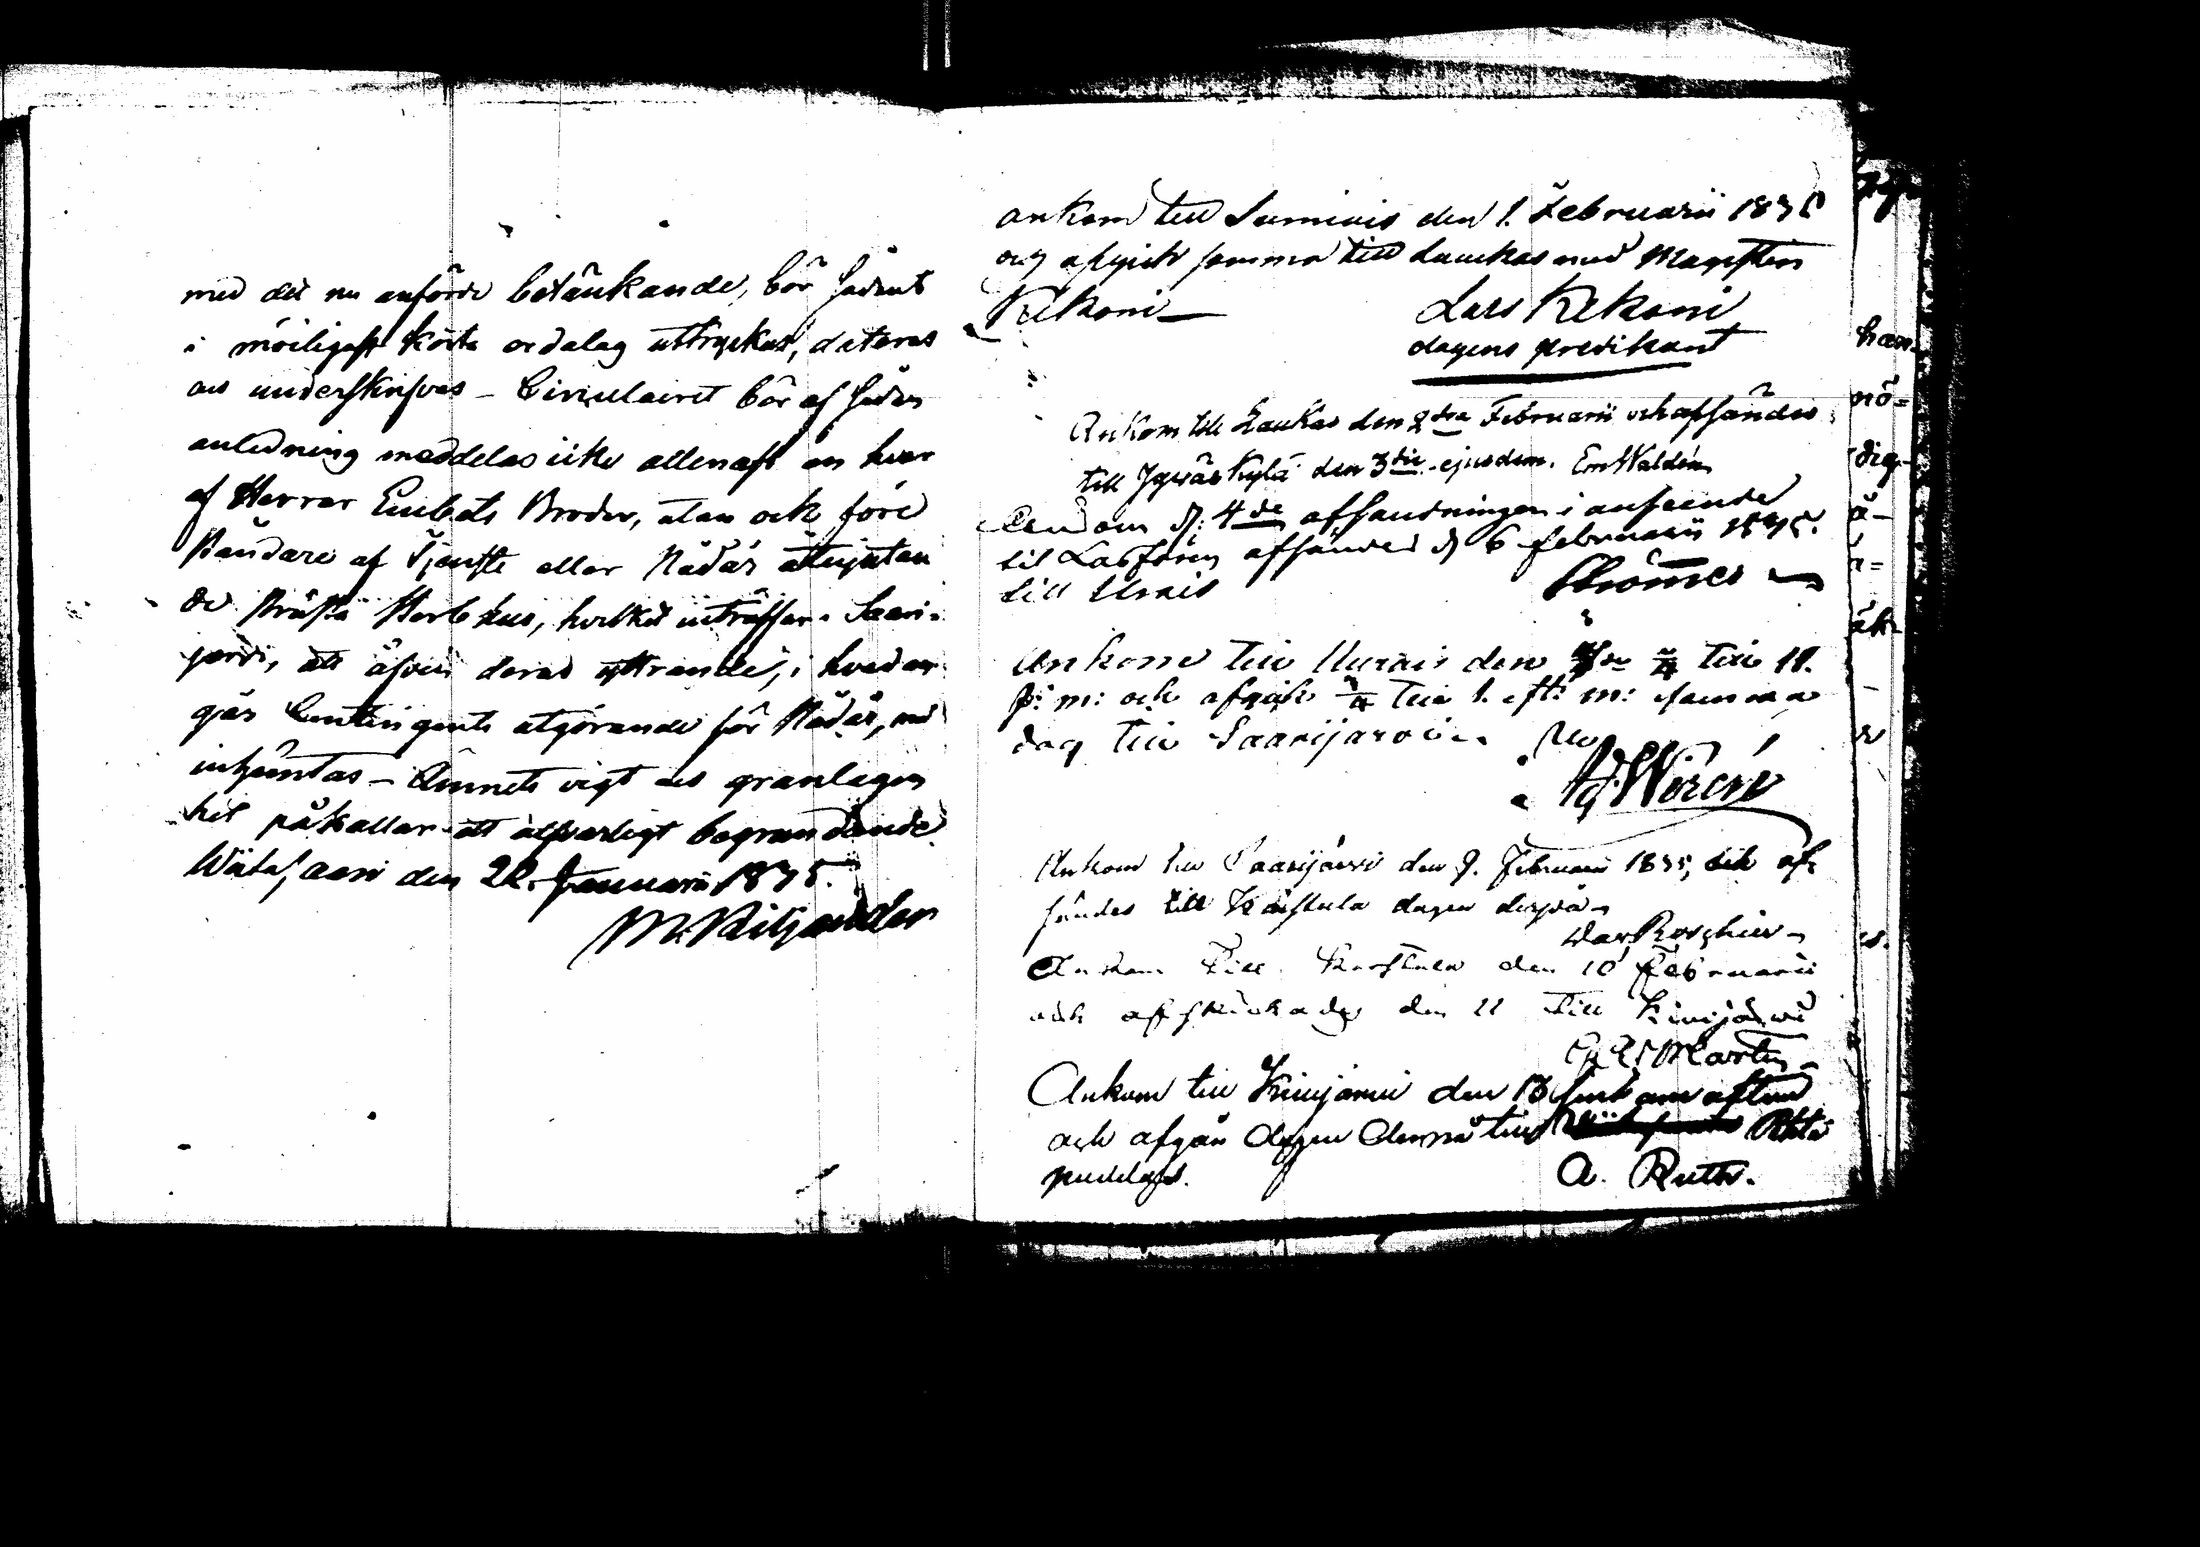 med det nu anförde betänkande, bör sådant
i möiligast korta ordalag uttryckas, dateras
och underskrifvas – Circulairet bör af sådan
anledning meddelas icke allenast än hvar
af Herrar Embets Bröder, utan ock före
ståndare af Tjenste eller Nådår åtnjutan
de Präste Sterbhus, hvilket inträffar i Saari-
järvi, att äfven deras yttrande, i hvad an-
går Contingents utgörande för Nådår, må
inhämtas – Ämnets vigt och granlagen
het påkallar ett alfvarligt begrundande.
Wiitasaari den 22 Januari 1835.
ankom till Sumiais den 1. Februarii 1835
och afgick samma till Laukas med
Kekoni – Lars Kekoni
dagens predikant
Ankom till Laukas den 2dra Februarii och afsändes
till Jyväskylä den 3die ejusdem. Em Waldén
d. 4de afsändningen i anseende
till afsändes d 6 februarii 1835.
till Urais
Ankom till Uurais den till 11.
f: m: och afgick till 1. eft: m: samma
dag till Saarijärvi.
Ad. Wirén
Ankom till Saarijärvi den 9. Februari 1835, och af-
sändes till Karstula dagen derpå
Ankom till Karstula den 10 Februarii
och afskickades den 11 till Kivijärvi
Ankom till Kivijärvi den 13 sent om aftonen
och afgår dagen derpå till
pudas.
A. Ruth.
han-
nö-
dig-
ä-
äk-